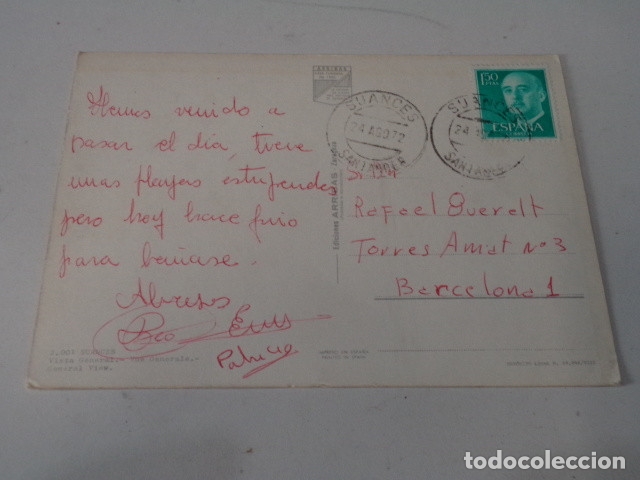 Hemos venido a
pasar el día, tiene
unas playas estupendas
pero hoy hace frio
para bañarse.
Abrazos
Patricia
SUANCES
24 AGO 72
SANTANDER
SUANCES
24
SANTANDER
1'50
PTAS
ESPAÑA
Ediciones ARRIBAS
Sr. D.
Rafael Querelt
Torres Amat nº 3
Barcelona 1
SUANCES
Vista General.-
General View.
todocoleccion.net